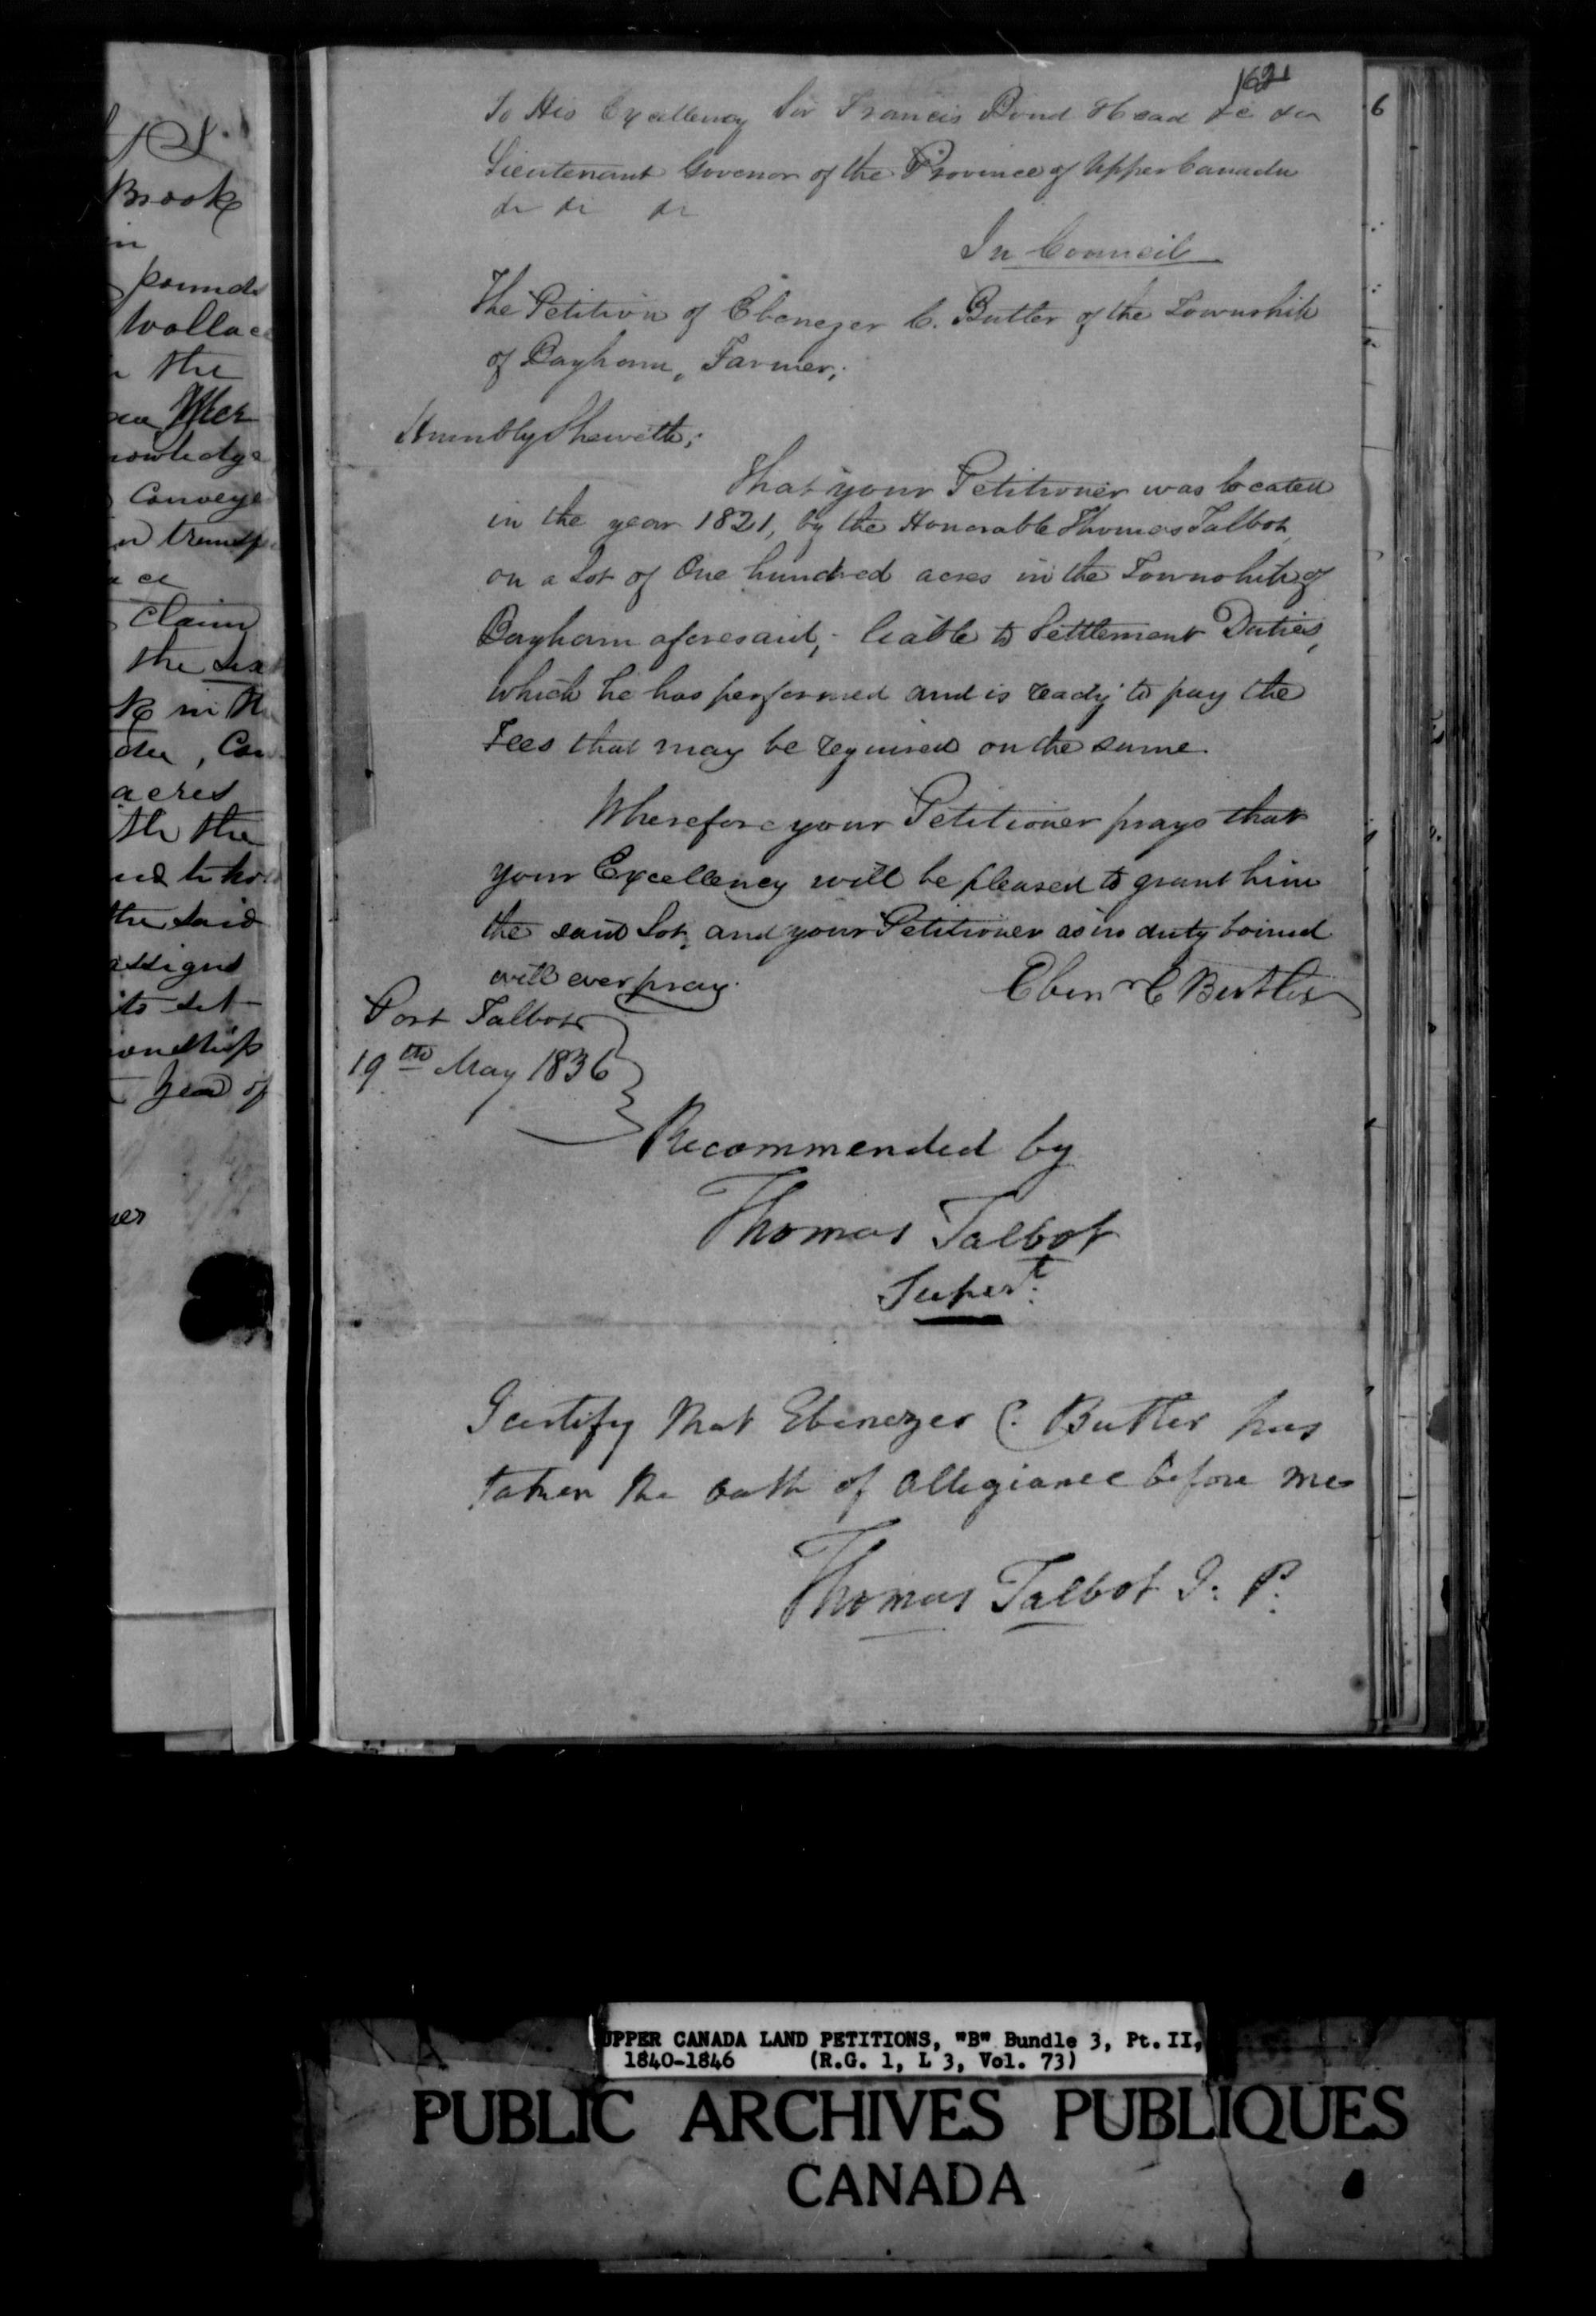 162
To His Excellency Sir Francis Bond Head &c &c
Lieutenant Govenor of the Province of Upper Canada
&c &c &c
In Council
The Petition of Ebenezer C. Butler of the Township
of Bayham, Farmer;
Humbly Sheweth;
That your Petitioner was located
in the year 1821, by the Honorable Thomas Talbot,
on a Lot of One hundred acres in the Township of
Bayham aforesaid; liable to Settlement Duties,
which he has performed and is ready to pay the
Fees that may be required on the same.
Wherefore your Petitioner prays that
your Excellency will be pleased to grant him
the said Lot, and your Petitioner as in duty bound
will ever pray.
Eben r C Butler
Port Talbot
19th May 1836
Recommended by
Thomas Talbot
Supert.
I certify that Ebenezer C. Butler has
taken the oath of allegiance before me
Thomas Talbot J. P.
Brook
in
pounds
Wallace
the
nowledge
Conveye
a
claim
the six
in the
, Con
acres
th the
the said
assigns
its
year of
6
UPPER CANADA LAND PETITIONS, "B" Bundle 3, Pt. II,
1840-1846 (R.G. 1, L 3, Vol. 73)
PUBLIC ARCHIVES PUBLIQUES
CANADA